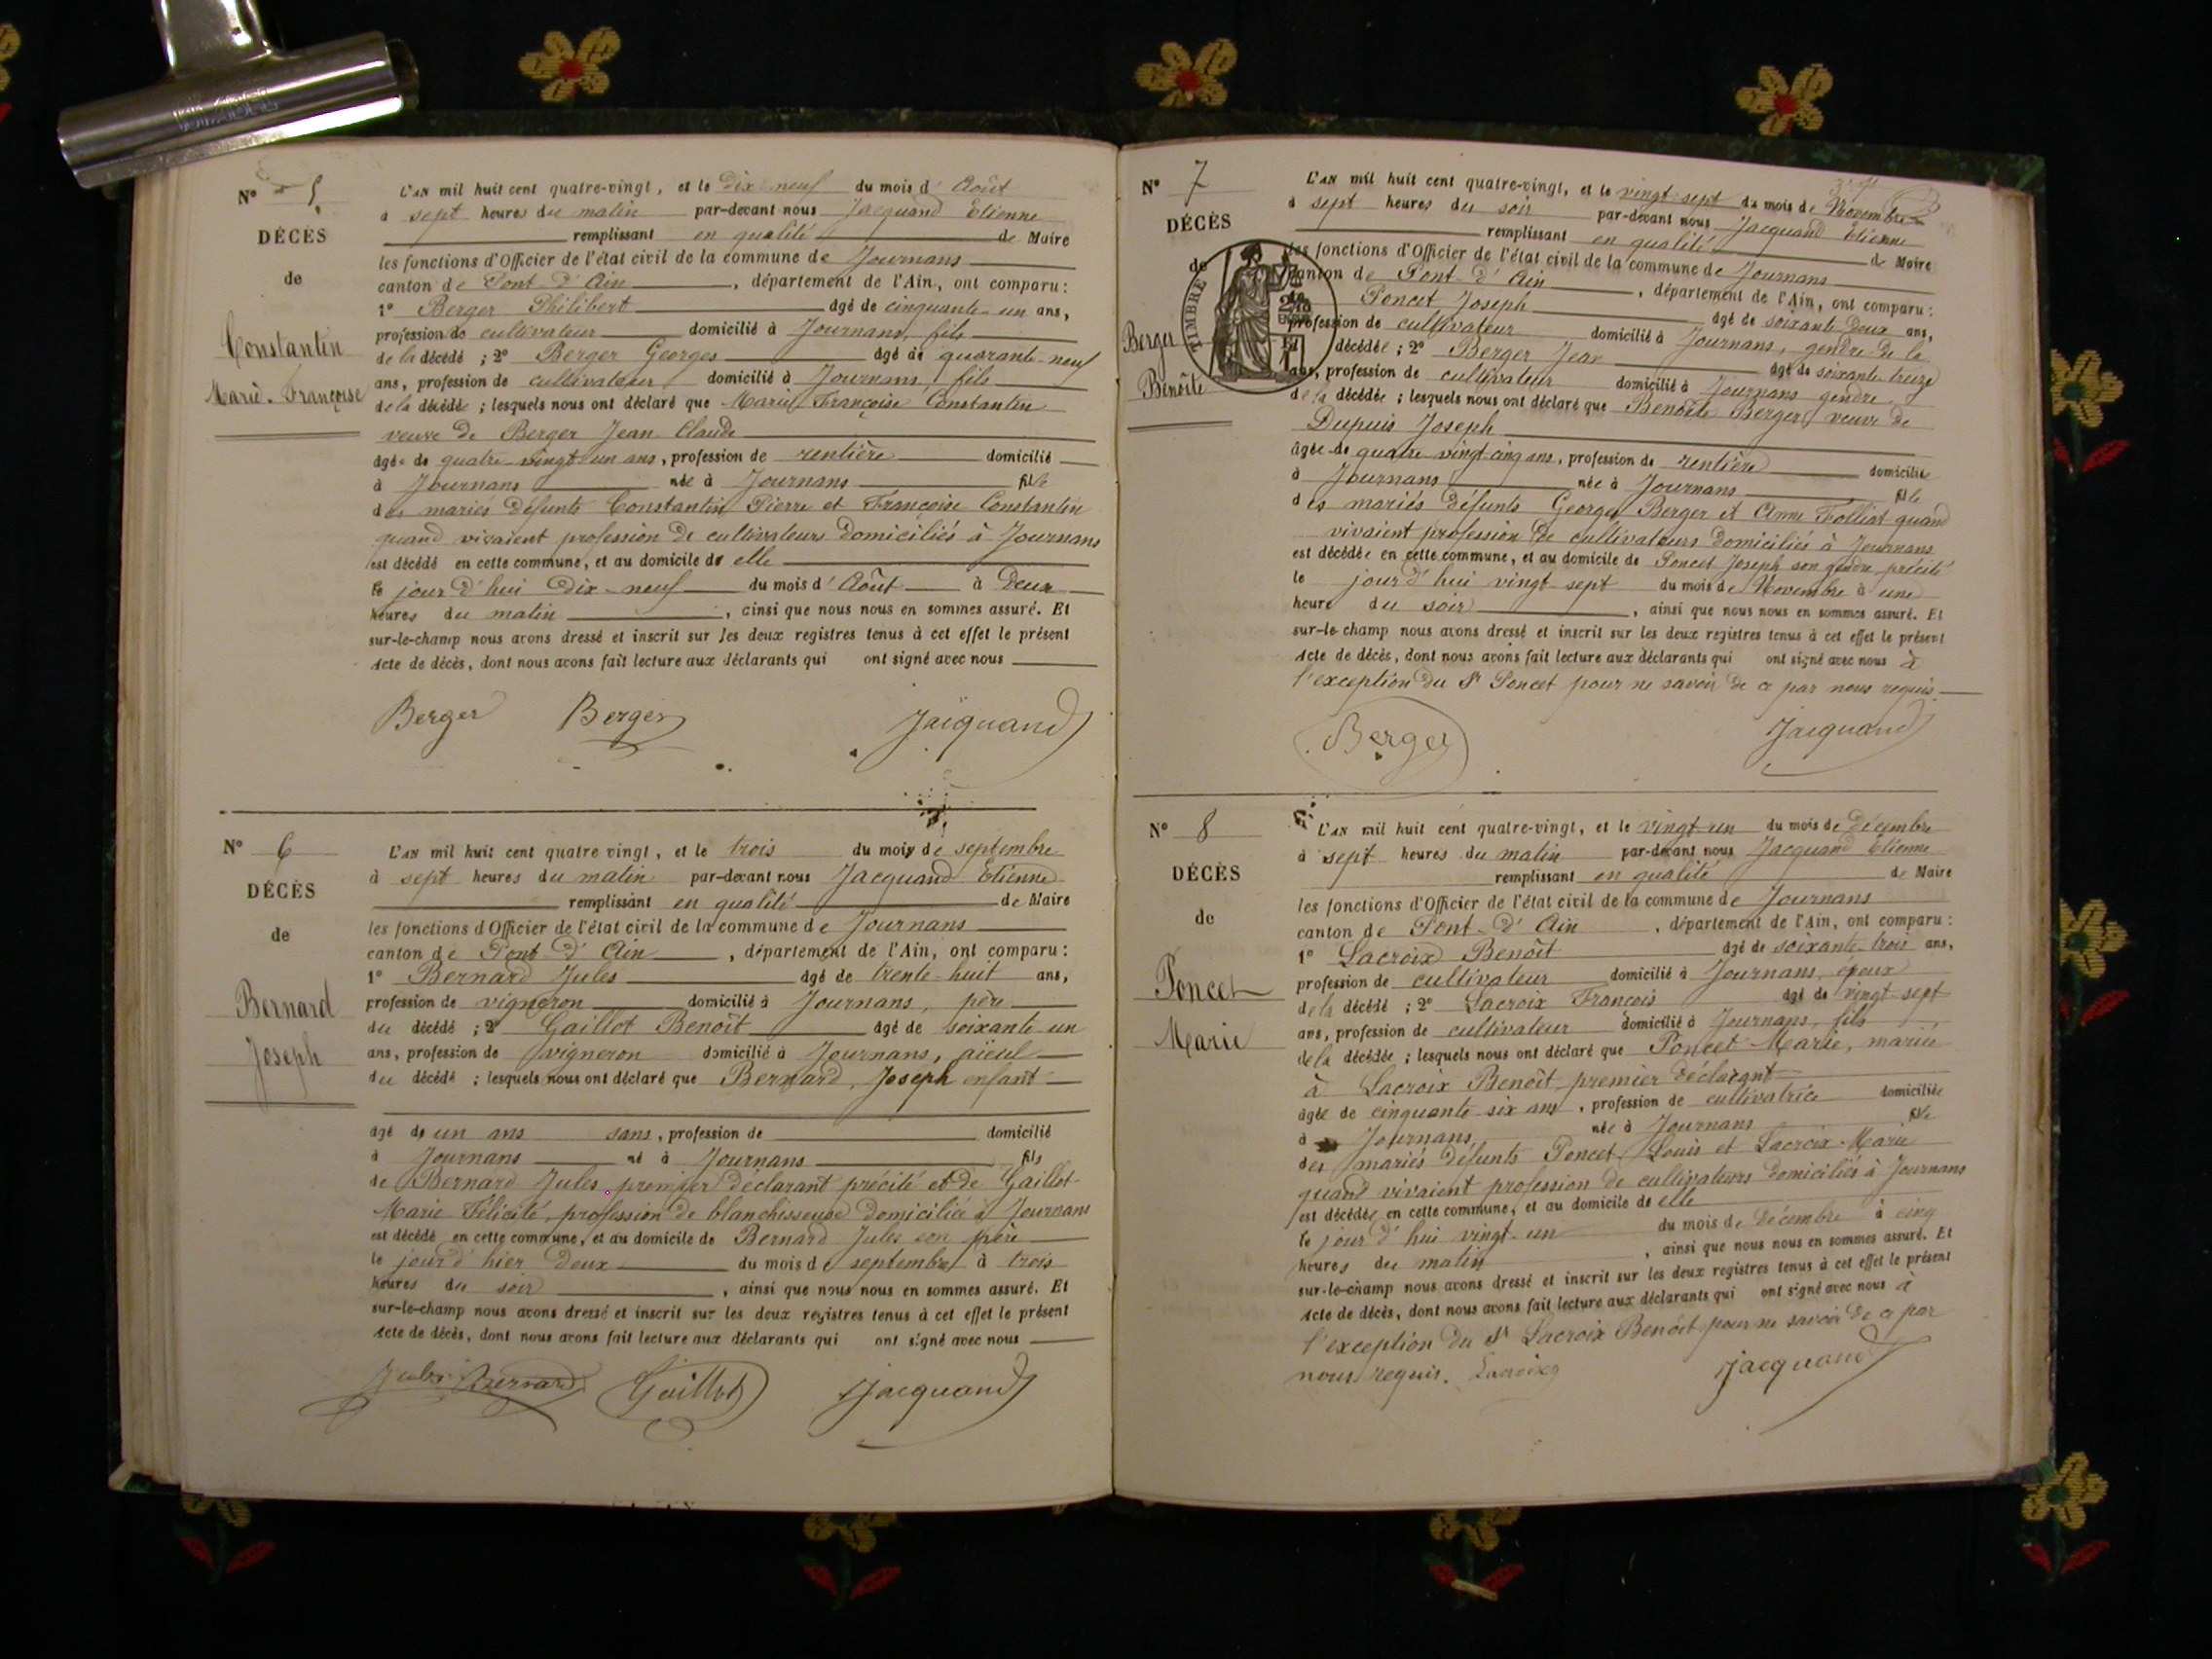 N° 5
DÉCÈS
de
Constantin
Marie-Françoise
L'AN mil huit cent quatre-vingt, et le Dix neuf du mois d' Août
à sept heures du matin par-devant nous Jacquand Etienne
remplissant en qualité de Maire
les fonctions d'Officier de l'état civil de la commune de Journans
canton de Pont d' Ain, département de l'Ain, ont comparu:
1° Berger Philibert âgé de cinquante-un ans,
profession de cultivateur domicilié à Journans, fils
de la décédé; 2° Berger Georges âgé de quarante-neuf
ans, profession de cultivateur domicilié à Journans, fils
de la décédée; lesquels nous ont déclaré que Marie Françoise Constantin
veuve de Berger Jean Claude
âgée de quatre-vingt-un ans, profession de rentière domicilié
à Journans née à Journans fille
des mariés défunts Constantin Pierre et Françoise Constantin
quand vivaient profession de cultivateurs domiciliés à Journans
est décédé en cette commune, et au domicile de elle
le jour d'hui dix-neuf du mois d' Août à Deux
heures du matin, ainsi que nous nous en sommes assuré. Et
sur-le-champ nous avons dressé et inscrit sur les deux registres tenus à cet effet le présent
Acte de décès, dont nous avons fait lecture aux déclarants qui ont signé avec nous
Berger Berger Jacquand
N° 6
DÉCÈS
de
Bernard
Joseph
L'AN mil huit cent quatre vingt, et le trois du mois de septembre
à sept heures du matin par-devant nous Jacquand Etienne
remplissant en qualité de Maire
les fonctions d'Officier de l'état civil de la commune de Journans
canton de Pont d' Ain, département de l'Ain, ont comparu:
1° Bernard Jules âgé de trente-huit ans,
profession de vigneron domicilié à Journans, père
du décédé; 2° Gaillot Benoît âgé de soixante-un
ans, profession de vigneron domicilié à Journans, aïeul
du décédé; lesquels nous ont déclaré que Bernard, Joseph enfant
âgé de un ans sans, profession de domicilié
à Journans né à Journans fils
de Bernard Jules premier déclarant précité et de Gaillot
Marie Félicité, profession de blanchisseuse domiciliée à Journans
est décédé en cette commune, et au domicile de Bernard Jules son père
le jour d'hier deux du mois de septembre à trois
heures du soir, ainsi que nous nous en sommes assuré. Et
sur-le-champ nous avons dressé et inscrit sur les deux registres tenus à cet effet le présent
Acte de décès, dont nous avons fait lecture aux déclarants qui ont signé avec nous
Jules Bernard Gaillot Jacquand
N° 7
DÉCÈS
de
Berger
Benoîte
TIMBRE
L'AN mil huit cent quatre-vingt, et le vingt-sept du mois de Novembre
à sept heures du soir par-devant nous Jacquand Etienne
remplissant en qualité de Maire
les fonctions d'Officier de l'état civil de la commune de Journans
canton de Pont d' Ain, département de l'Ain, ont comparu:
Poncet Joseph âgé de soixante-deux ans,
profession de cultivateur domicilié à Journans, gendre de la
décédée; 2° Berger Jean âgé de soixante-treize
ans, profession de cultivateur domicilié à Journans gendre
de la décédée; lesquels nous ont déclaré que Benoîte Berger, veuve de
Dupuis Joseph
âgée de quatre-vingt-cinq ans, profession de rentière domicilié
à Journans née à Journans fille
des mariés défunts Georges Berger et Anne Folliat quand
vivaient profession de cultivateurs domiciliés à Journans
est décédée en cette commune, et au domicile de Poncet Joseph son gendre précité
le jour d'hui vingt sept du mois de Novembre à une
heure du soir, ainsi que nous nous en sommes assuré. Et
sur-le-champ nous avons dressé et inscrit sur les deux registres tenus à cet effet le présent
Acte de décès, dont nous avons fait lecture aux déclarants qui ont signé avec nous à
l'exception du Sr Poncet pour ne savoir de ce par nous requis
Berger Jacquand
N° 8
DÉCÈS
de
Poncet
Marie
L'AN mil huit cent quatre-vingt, et le vingt-un du mois de Décembre
à sept heures du matin par-devant nous Jacquand Etienne
remplissant en qualité de Maire
les fonctions d'Officier de l'état civil de la commune de Journans
canton de Pont-d' Ain, département de l'Ain, ont comparu:
1° Lacroix Benoît âgé de soixante-trois ans,
profession de cultivateur domicilié à Journans, époux
de la décédé; 2° Lacroix François âgé de vingt-sept
ans, profession de cultivateur domicilié à Journans, fils
de la décédée; lesquels nous ont déclaré que Poncet Marie, mariée
à Lacroix Benoît premier déclarant
âgée de cinquante-six ans, profession de cultivatrice domiciliée
à Journans née à Journans fille
des mariés défunts Poncet Louis et Lacroix Marie
quand vivaient profession de cultivateurs domiciliés à Journans
est décédée en cette commune, et au domicile de elle
le jour d' hui vingt-un du mois de Décembre à cinq
heures du matin, ainsi que nous nous en sommes assuré. Et
sur-le-champ nous avons dressé et inscrit sur les deux registres tenus à cet effet le présent
Acte de décès, dont nous avons fait lecture aux déclarants qui ont signé avec nous à
l'exception du Sr Lacroix Benoît pour ne savoir de ce par
nous requis. Lacroix Jacquand